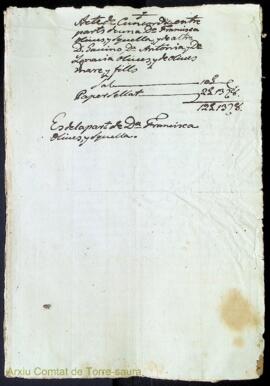 Acte de Concordia entre
parts de una Dª Francisca
olives y squella, y de altre
D. Gavino Dª Antonia y Dª
Ignacia olives y de olives
mare y fills
Sal 10
Paper sellat 2 13 6
12 13 6
Es de la part de Dª Francisca
olives y squella
Arxiu Comtat de Torre-saura